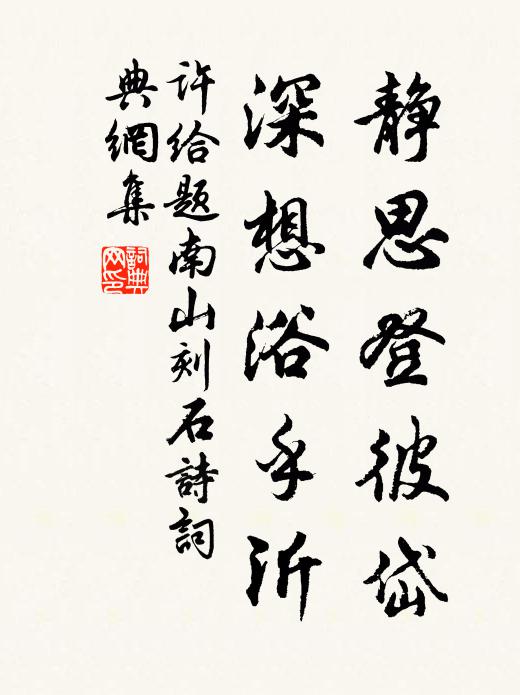 静思登彼岱
深想浴乎沂
许给题南山刻石詩詞
典網集
詞典
网印